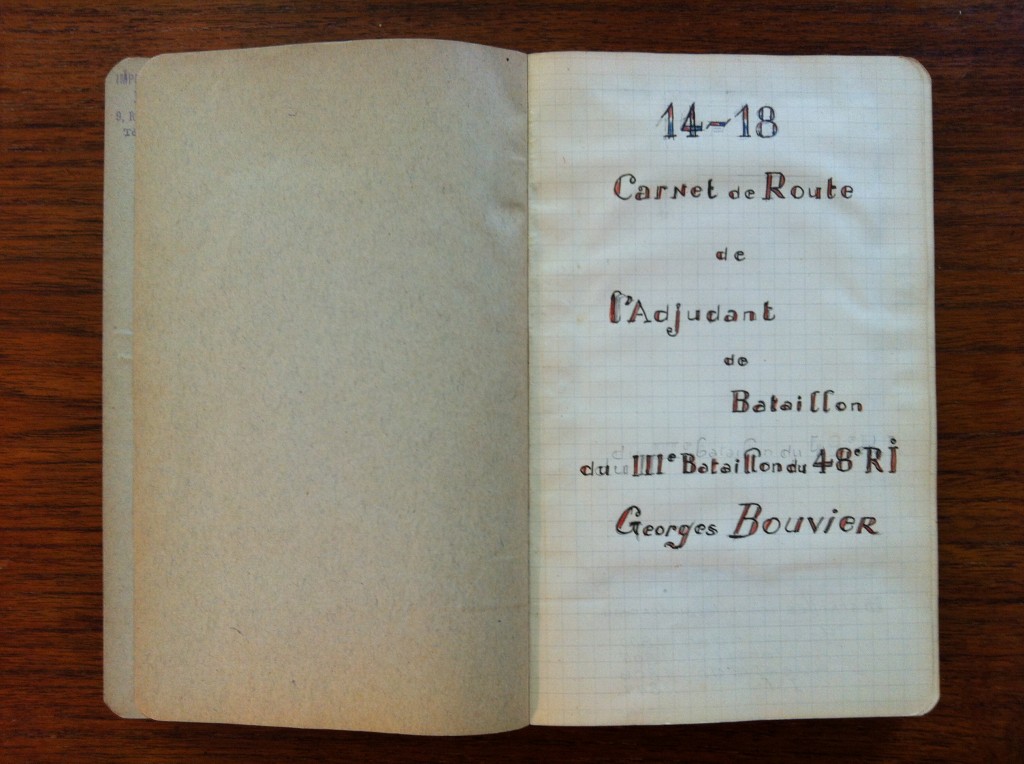 14-18
Carnet de Route
de
l'Adjudant
de
Bataillon
du IIIe Bataillon du 48e RI
Georges Bouvier